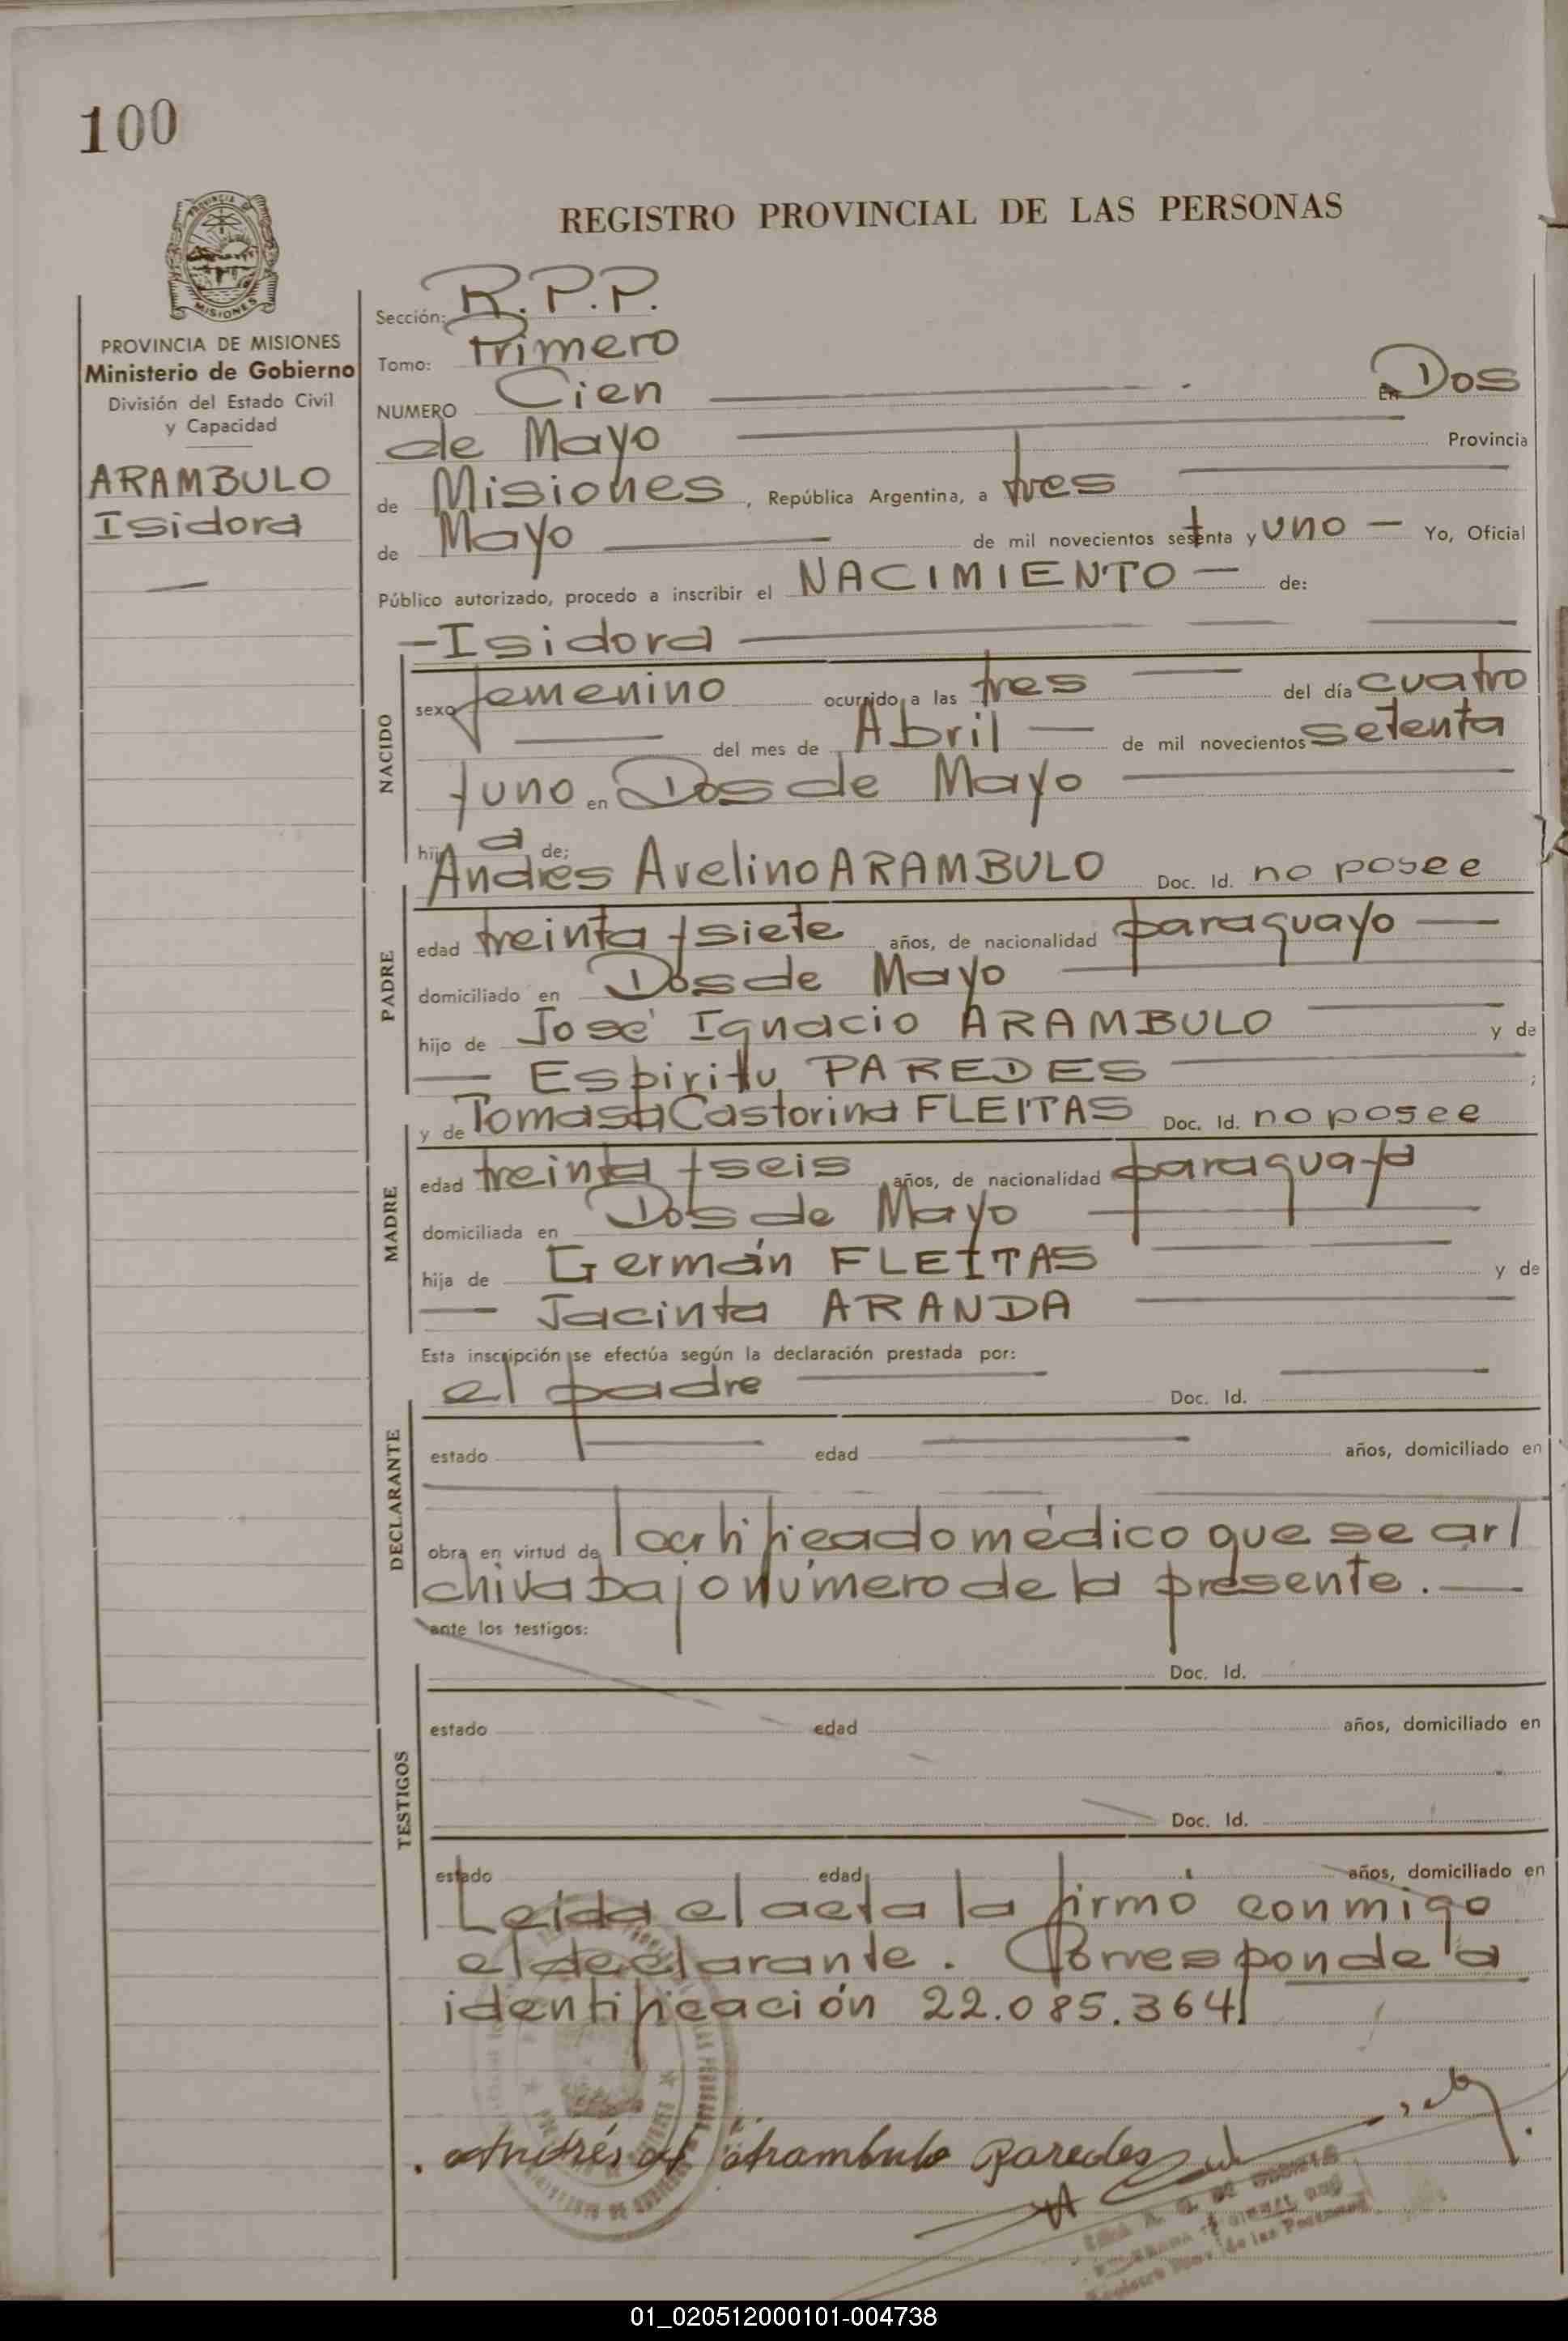 100
REGISTRO PROVINCIAL DE LAS PERSONAS
PROVINCIA DE MISIONES
MISIONES
PROVINCIA DE MISIONES
Ministerio de Gobierno
División del Estado Civil
y Capacidad
ARAMBULO
Isidora
Sección: R.P.P.
Tomo: Primero
NUMERO Cien En Dos
de Mayo Provincia
de Misiones, República Argentina, a tres
de Mayo de mil novecientos setenta y uno — Yo, Oficial
Público autorizado, procedo a inscribir el NACIMIENTO — de:
— Isidora
NACIDO
sexo femenino ocurrido a las tres del día cuatro
del mes de Abril — de mil novecientos setenta
y uno en Dos de Mayo
hij a de:
Andrés Avelino ARAMBULO Doc. Id. no posee
PADRE
edad treinta y siete años, de nacionalidad paraguayo —
domiciliado en Dos de Mayo
hijo de José Ignacio ARAMBULO y de
— Espiritu PAREDES ;
y de Tomasa Castorina FLEITAS Doc. Id. no posee
MADRE
edad treinta y seis años, de nacionalidad paraguaya
domiciliada en Dos de Mayo
hija de Germán FLEITAS y de
— Jacinta ARANDA
Esta inscripción se efectúa según la declaración prestada por:
el padre Doc. Id.
DECLARANTE
estado edad años, domiciliado en
obra en virtud de certificado médico que se ar
chiva bajo número de la presente. —
ante los testigos:
Doc. Id.
TESTIGOS
estado edad años, domiciliado en
Doc. Id.
estado edad años, domiciliado en
Leída el acta la firmó conmigo
el declarante. Corresponde la
identificación 22.085.364
Andrés A Arambulo Paredes
01_020512000101-004738